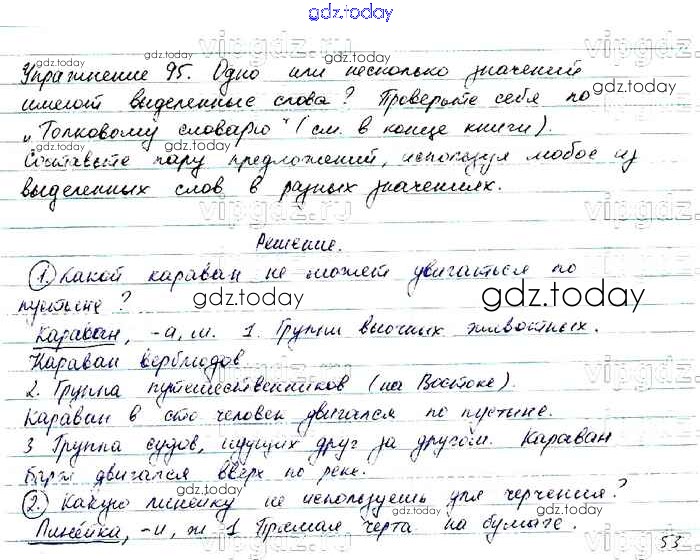 gdz.today
Упражнение 95. Одно или несколько значений
имеют выделенные слова? Проверьте себя по
„Толковому словарю" (см. в конце книги).
Составьте пару предложений, используя любое из
выделенных слов в разных значениях.
Решение.
1. Какой караван не может двигаться по
пустыне?
Караван, -а, м. 1. Группа вьючных животных.
Караван верблюдов
2. Группа путешественников (на Востоке).
Караван в сто человек двигался по пустыне.
3 Группа судов, идущих друг за другом. Караван
барж двигался вверх по реке.
2. Какую линейку не используешь для черчения?
Линейка, -и, ж 1 Прямая черта на бумаге.
53